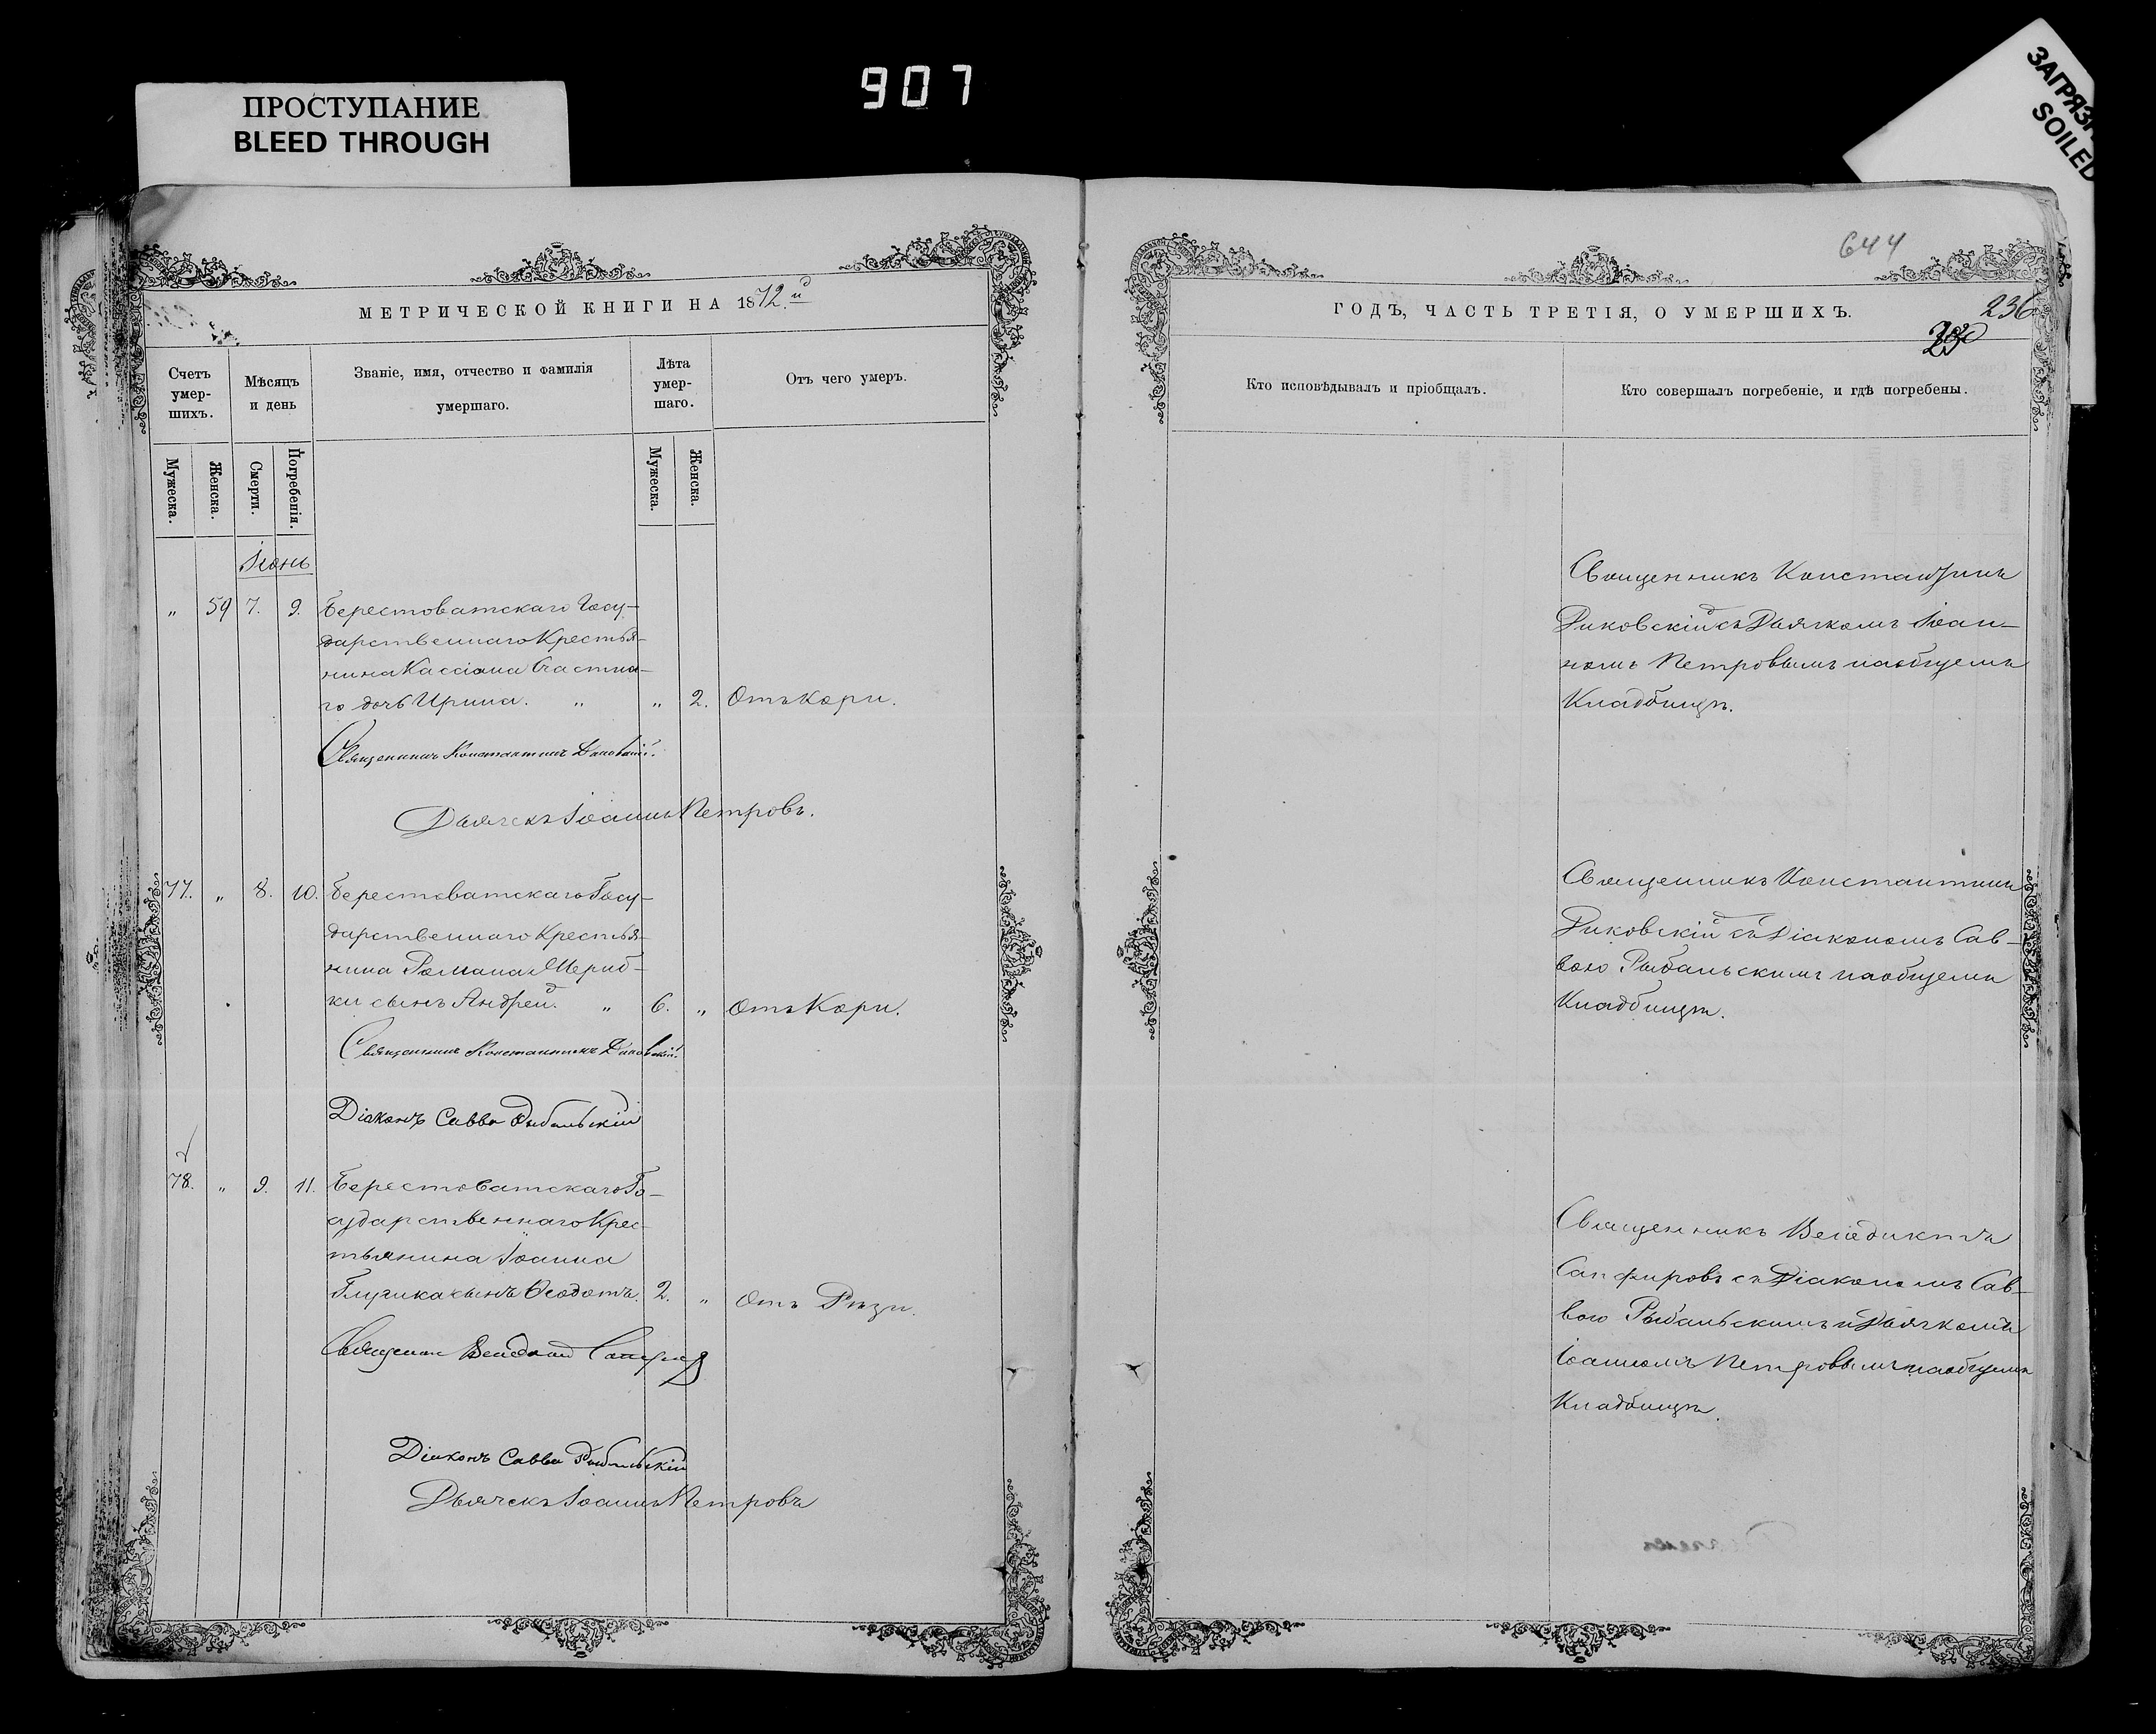 907
ПРОСТУПАНИЕ
BLEED THROUGH
SOILED
МЕТРИЧЕСКОЙ КНИГИ НА 1872й
Счетъ умер-шихъ.
Мѣсяцъ и день
Званіе, имя, отчество и фамилія умершаго.
Лѣта умер-шаго.
Отъ чего умеръ.
Мужеска.
Женска.
Смерти.
Погребенія.
Мужеска.
Женска.
Іюнь
„ 59 7. 9. Берестоватскаго Госу-
дарственнаго Крестья-
нина Кассіана
го дочь Ирина. „ „ 2. Отъ Кори.
Священникъ Константинъ Диковскій.
Дьячекъ Іоаннъ Петровъ.
77. „ 8. 10. Берестоватскаго Госу-
дарственнаго Крестья-
нина Романа
ки сынъ Андрей. „ 6. „ Отъ Кори.
Священникъ Константинъ Диковскій.
Діаконъ Савва Рыбальскій
78. „ 9. 11. Берестоватскаго Го-
сударственнаго Крес-
тьянина Іоанна
сынъ Ѳеодотъ. 2. „ Отъ
Священник Венедикт Сапфиров
Діаконъ Савва Рыбальскій
Дьячекъ Іоаннъ Петровъ
644
ГОДЪ, ЧАСТЬ ТРЕТІЯ, О УМЕРШИХЪ.
236
Кто исповѣдывалъ и пріобщалъ.
Кто совершалъ погребеніе, и гдѣ погребены.
Священникъ Константинъ
Диковскій съ Дьячкомъ Іоан-
номъ Петровымъ на общемъ
Кладбищѣ.
Священникъ Константинъ
Диковскій съ Діакономъ Сав-
вою Рыбальскимъ на общемъ
Кладбищѣ.
Священникъ Венедиктъ
Сапфировъ съ Діакономъ Сав-
вою Рыбальскимъ и Дьячкомъ
Іоанномъ Петровымъ на общемъ
Кладбищѣ.